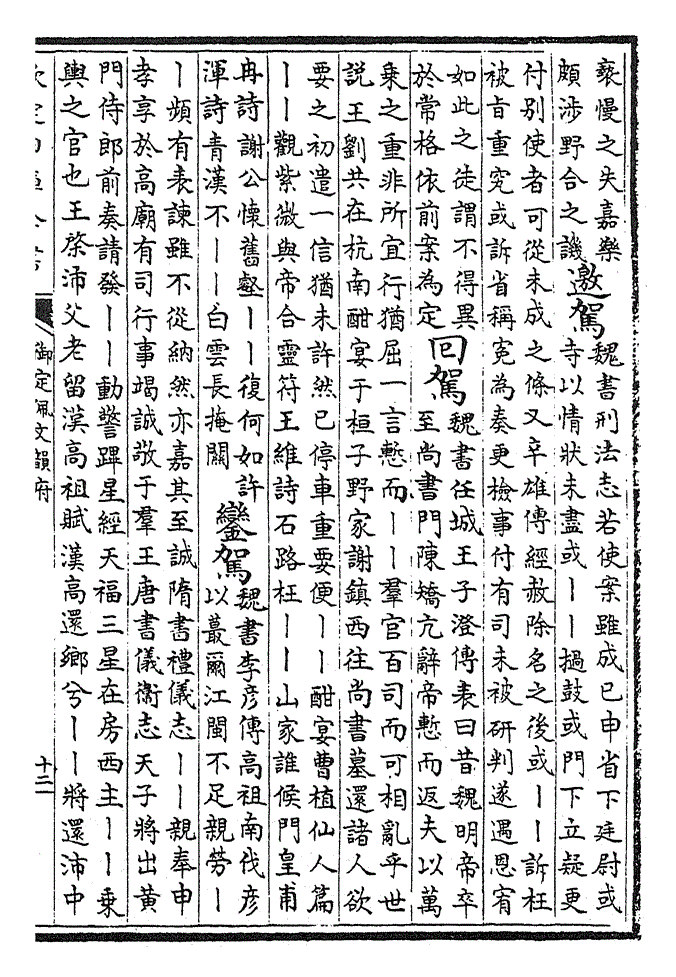 褻慢之失嘉樂
頗涉野合之譏
邀駕
魏書刑法志若使案雖成已申省下廷尉或
寺以情狀未盡或丨丨撾鼓或門下立疑更
付別使者可從未成之條又辛雄傳經赦除名之後或丨丨訴枉
被旨重究或訴省稱冤為奏更檢事付有司未被研判遂遇恩宥
如此之徒謂不得異
於常格依前案為定
回駕
魏書任城王子澄傳表曰昔魏明帝卒
至尚書門陳矯亢辭帝慙而返夫以萬
乘之重非所宜行猶屈一言慙而丨丨羣官百司而可相亂乎世
說王劉共在杭南酣宴于桓子野家謝鎮西往尚書墓還諸人欲
要之初遣一信猶未許然已停車重要便丨丨酣宴曹植仙人篇
丨丨觀紫微與帝合靈符王維詩石路枉丨丨山家誰候門皇甫
冉詩謝公懷舊壑丨丨復何如許
渾詩青漢不丨丨白雲長掩關
鑾駕
魏書李彦傳高祖南伐彦
以蕞爾江閩不足親勞丨
丨頻有表諫雖不從納然亦嘉其至誠隋書禮儀志丨丨親奉申
孝享於高廟有司行事竭誠敬于羣王唐書儀衛志天子將出黄
門侍郎前奏請發丨丨動警蹕星經天福三星在房西主丨丨乘
輿之官也王棨沛父老留漢高祖賦漢高還鄉兮丨丨將還沛中
欽定四庫全書
御定佩文韻府
十二